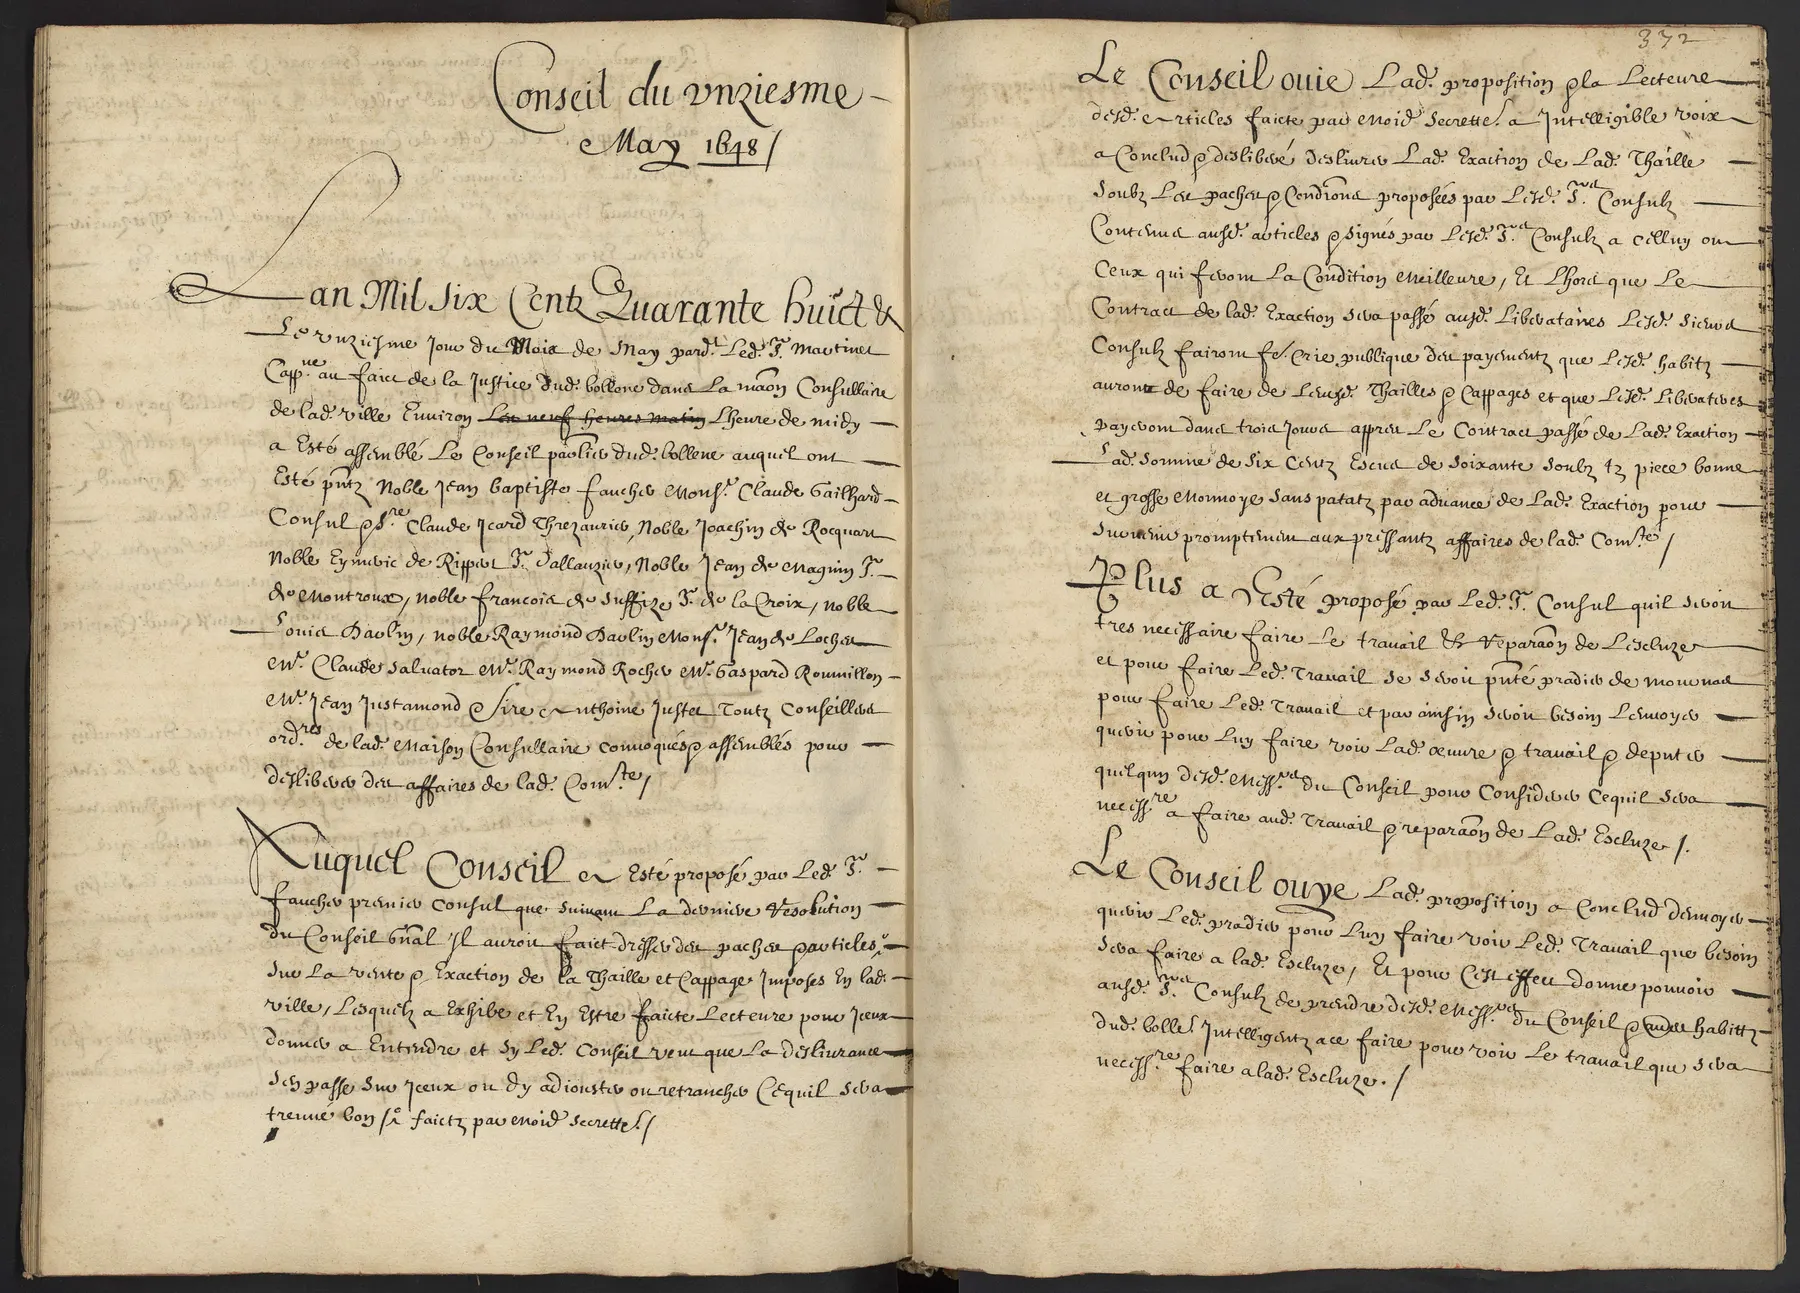 Conseil du vnziesme
May 1648 /
Lan Mil Six Centz Quarante huict &
Le vnziesme jour du Mois de May pard.t Led. Sr. Martinet
Capp.ne au faict de la Justice dud. bollene dans La maon Consullaire
de lad. ville Environ Les neuf heures matin Lheure de midy
a Esté assemblé Le Conseil parlier dud. bollene auquel ont
Esté pntz Noble Jean baptiste faucher Mons.r Claude Gailhard
Consul & S.re Claude Jcard Threzaurier, Noble Joachin de Rocquart
Noble Eymeric de Rippert Sr. dallauzier, Noble Jean de Magnin Sr.
de Montroux, noble francois de Suffize Sr. de la Croix, noble
Louis Daulin, noble Raymond Daulin Mons.r Jean de Loches
Mr. Claude Saluator Mr. Raymond Rocher Mr. Gaspard Roumillon
Mr. Jean Justamond & Sire Anthoine Juste Toutz Conseillers
ord.res de lad. Maison Consullaire convoqués & assemblés pour
deslibérer des affaires de lad. Com.te /
Auquel Conseil a Esté proposé par Led. Sr.
faucher premier Consul que suivant La derniere Resolution
du Conseil gnal Jl auroit faict dresser des paches & articles
Sur La rente & Exaction de la Thaille et Cappage Imposés En lad.
ville, Lesquelz a Exhibé et En Estre faicte Lecteure pour Jceux
donner a Entendre et sy Led. Conseil veut que La desliurance
Sen passe Sur Jceux ou dy adiouster ou retrancher Cequil Sera
treuué bon faictz par Moid. Secrette.r /
372
Le Conseil ouie Lad. proposition & la Lecteure
desd. Articles faicte par Moid. Secrette.r a Jntelligible voix
a Conclud & deslibéré desliurer Lad. Exaction de Lad. Thaille
Soubz Les paches & Condions proposées par Lesd. Srs. Consulz
Contenus ausd. articles & signés par Lesd. Srs. Consulz a Celluy ou
Ceux qui feront La Condition Meilleure, Et Lhors que Le
Contract de lad. Exaction Sera passé ausd. Liberataires Lesd. Sieurs
Consulz fairont fe. Crie publique des payementz que Lesd. habitz
auront de faire de Leursd. Thailles & Cappages et que Lesd. Liberatires
payeront dans trois Jours appres Le Contract passé de Lad. Exaction
Lad. Somme de Six Centz Escus de Soixante Soubz tz piece bonne
et grosse Monnoye sans patatz par aduance de Lad. Exaction pour
Suruenir promptement aux pressantz affaires de lad. Com.te /
Plus a Esté proposé par Led. Sr. Consul quil seroit
tres necessaire faire Le trauail & reparaon de Lescluze
et pour faire Led. Trauail Se Seroit pnté pradier de Mournas
pour faire Led. Trauail et par ainsin Seroit besoin Lenvoyer
querir pour Luy faire voir Lad. œuure & trauail & deputer
quelqun desd. Mess.rs du Conseil pour Considerer Cequil Sera
necess.re a faire aud. Trauail & reparaon de Lad. Escluze /.
Le Conseil ouye Lad. proposition a Conclud denvoyer
querir Led. pradier pour Luy faire voir Led. Trauail que besoin
Sera faire a lad. Escluze, Et pour Cest effect donne pouuoir
ausd. Srs. Consulz de prendre desd. Mess.rs du Conseil & habittz
dud. bolle. Intelligentz a ce faire pour voir Le trauail que Sera
necess.re faire a lad. Escluze. /